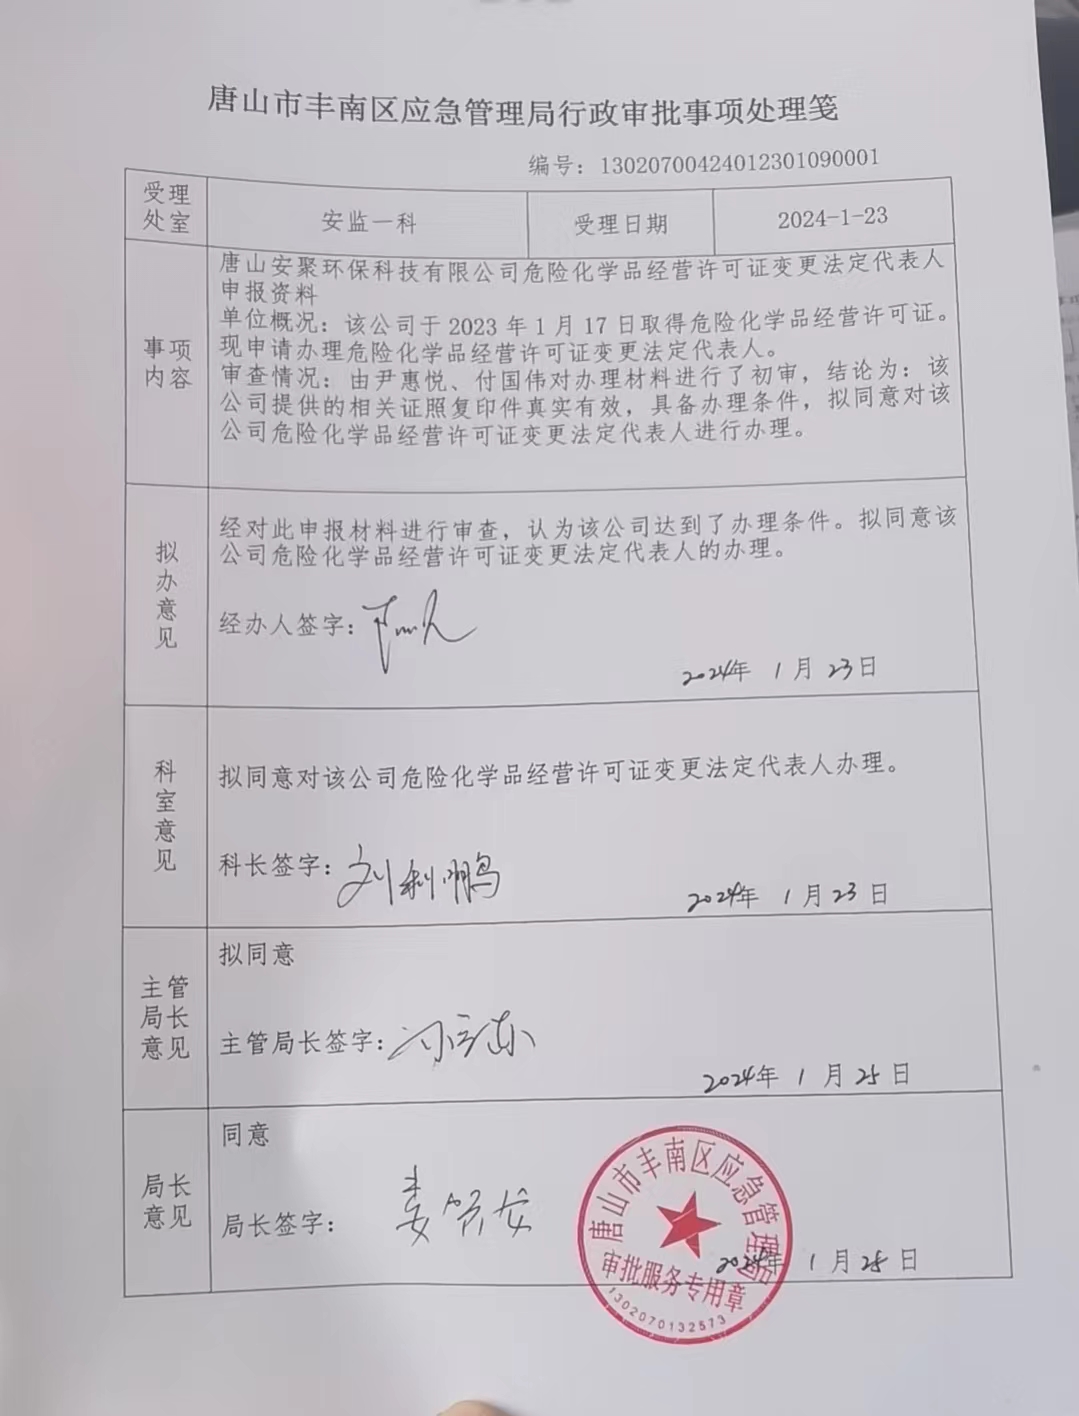 唐山市丰南区应急管理局行政审批事项处理笺
编号：13020700424012301090001
受理
处室
安监一科
受理日期
2024-1-23
事项
内容
唐山安聚环保科技有限公司危险化学品经营许可证变更法定代表人
申报资料
单位概况：该公司于2023年1月17日取得危险化学品经营许可证。
现申请办理危险化学品经营许可证变更法定代表人。
审查情况：由尹惠悦、付国伟对办理材料进行了初审，结论为：该
公司提供的相关证照复印件真实有效，具备办理条件，拟同意对该
公司危险化学品经营许可证变更法定代表人进行办理。
拟
办
意
见
经对此申报材料进行审查，认为该公司达到了办理条件。拟同意该
公司危险化学品经营许可证变更法定代表人的办理。
经办人签字：
2024年 1 月 23 日
科
室
意
见
拟同意对该公司危险化学品经营许可证变更法定代表人办理。
科长签字：刘利鹏
2024年 1 月 23 日
主管
局长
意见
拟同意
主管局长签字：
2024年 1 月 25 日
局长
意见
同意
局长签字：
2024年 1 月 25 日
唐山市丰南区应急管理局
审批服务专用章
1302070132573